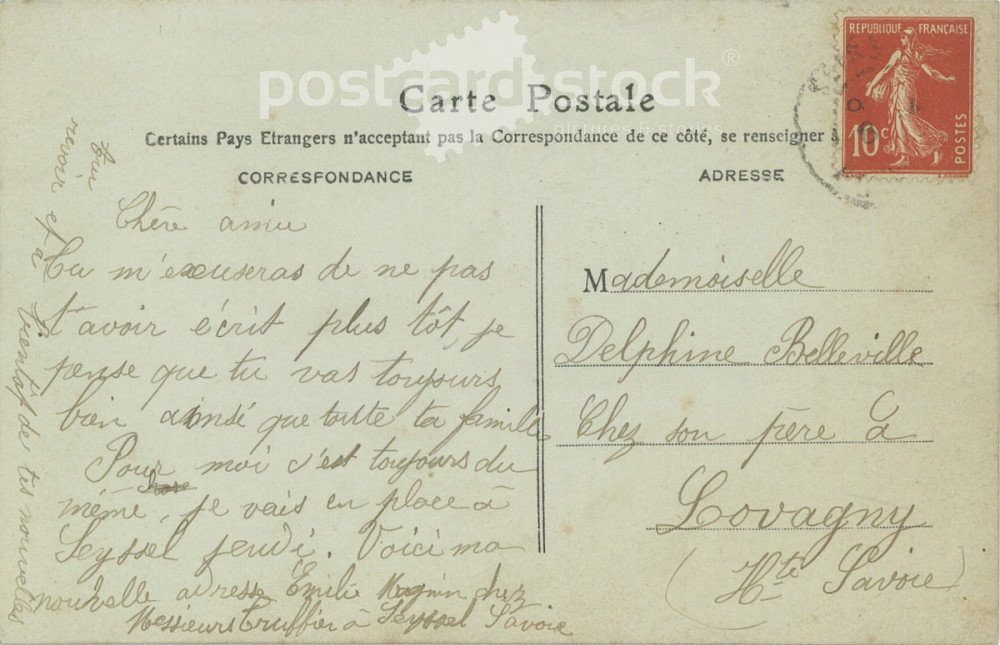 postcard-stock®
Carte Postale
Certains Pays Etrangers n'acceptant pas la Correspondance de ce côté, se renseigner à
CORRESPONDANCE
ADRESSE
REPUBLIQUE FRANÇAISE
10c
POSTES
Chère amie
Tu m'excuseras de ne pas
t'avoir écrit plus tôt, je
pense que tu vas toujours
bien ainsé que toute ta famille
Pour moi c'est toujours du
même, je vais en place à
Seyssel jeudi. Voici ma
nouvelle adresse Émilie chez
Messieurs Truffier à Seyssel Savoie
revoir et à bientôt de tes nouvelles
Mademoiselle
Delphine Belleville
Chez son père à
Lovagny
(Hte Savoie)